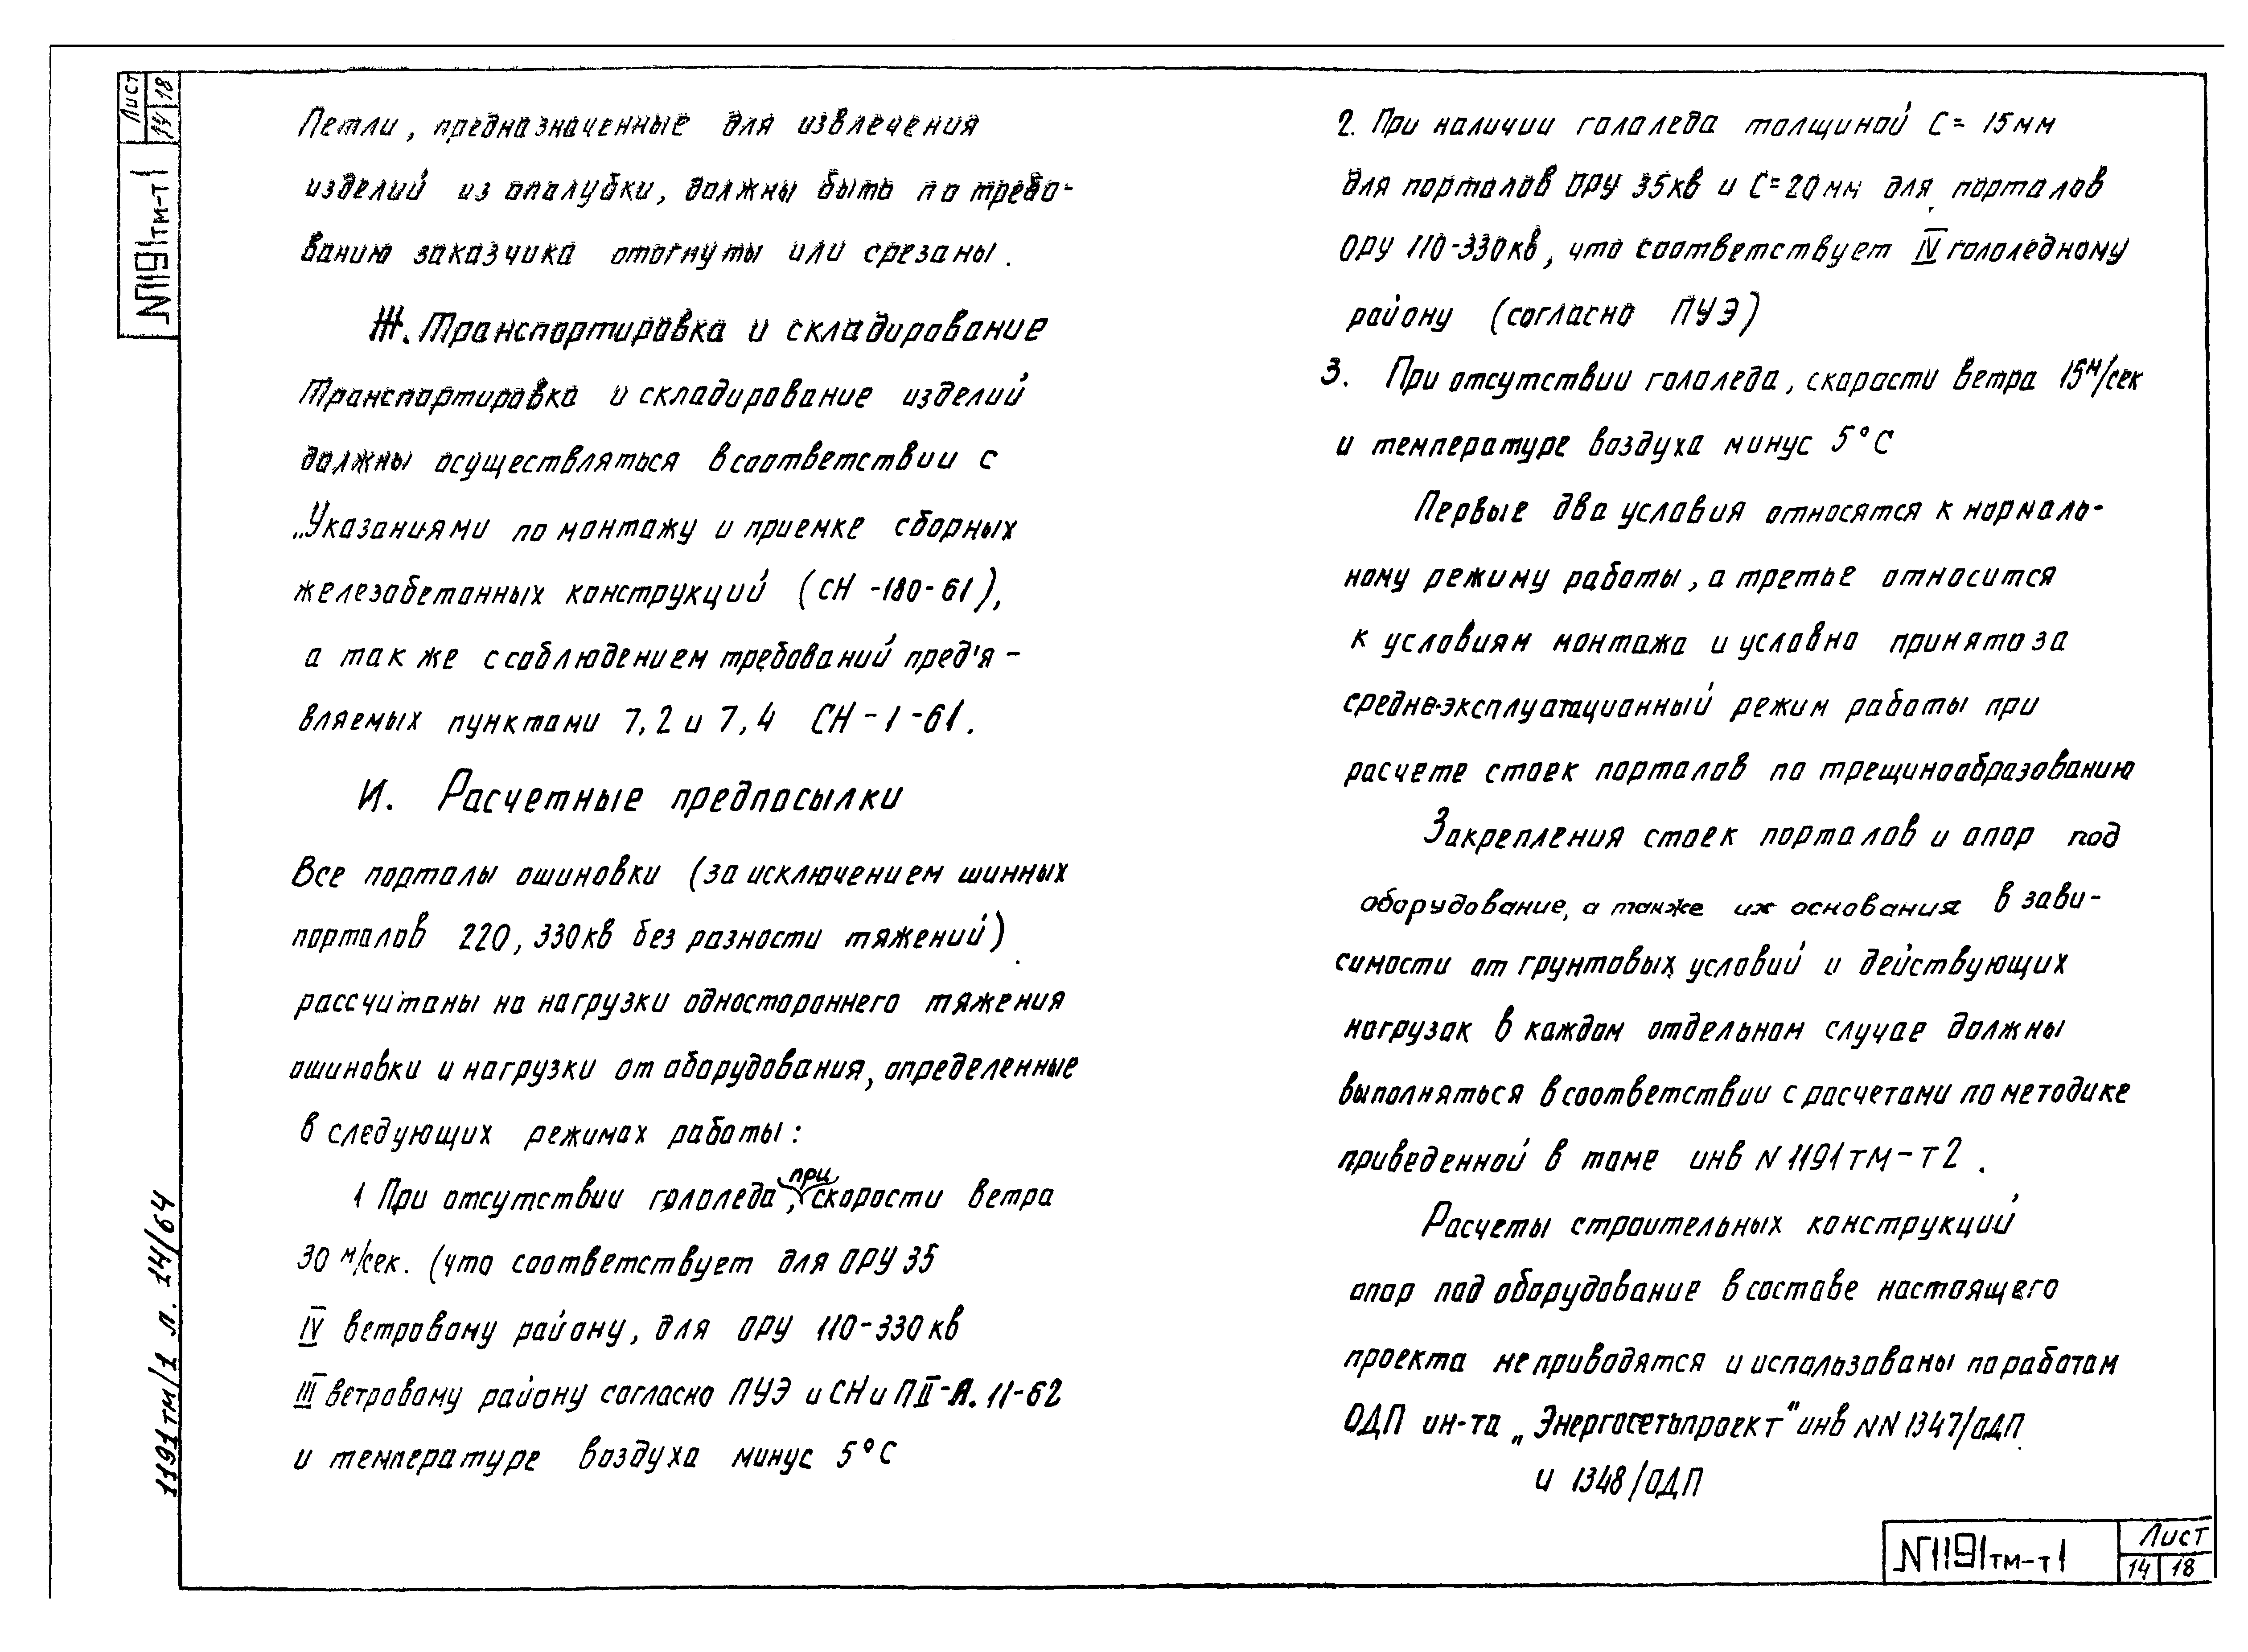 Лист
14 18
N1191тм-т1
Петли, предназначенные для извлечения
изделий из опалубки, должны быть по требо-
ванию заказчика отогнуты или срезаны.
Ж. Транспортировка и складирование
Транспортировка и складирование изделий
должны осуществляться в соответствии с
„Указаниями по монтажу и приемке сборных
железобетонных конструкций (СН-180-61),
а также с соблюдением требований пред'я-
вляемых пунктами 7,2 и 7,4 СН-1-61.
И. Расчетные предпосылки
Все порталы ошиновки (за исключением шинных
порталов 220, 330кв без разности тяжений)
рассчитаны на нагрузки одностороннего тяжения
ошиновки и нагрузки от оборудования, определенные
в следующих режимах работы:
1 При отсутствии гололеда, при скорости ветра
30 м/сек. (что соответствует для ОРУ 35
IV ветровому району, для ОРУ 110-330кв
III ветровому району согласно ПУЭ и СНиП II-А. 11-62
и температуре воздуха минус 5°С
2. При наличии гололеда толщиной С= 15мм
для порталов ОРУ 35кв и С=20мм для порталов
ОРУ 110-330кв, что соответствует IV гололедному
району (согласно ПУЭ)
3. При отсутствии гололеда, скорости ветра 15м/сек
и температуре воздуха минус 5°С
Первые два условия относятся к нормаль-
ному режиму работы, а третье относится
к условиям монтажа и условно принято за
средне-эксплуатационный режим работы при
расчете стоек порталов по трещинообразованию
Закрепления стоек порталов и опор под
оборудование, а также их основания в зави-
симости от грунтовых условий и действующих
нагрузок в каждом отдельном случае должны
выполняться в соответствии с расчетами по методике
приведенной в томе инв N 1191тм-т2.
Расчеты строительных конструкций
опор под оборудование в составе настоящего
проекта не приводятся и использованы по работам
ОДП ин-та „Энергосетьпроект“ инв NN 1347/ОДП
и 1348/ОДП
1191тм/1 л. 14/64
N1191тм-т1
Лист
14 18